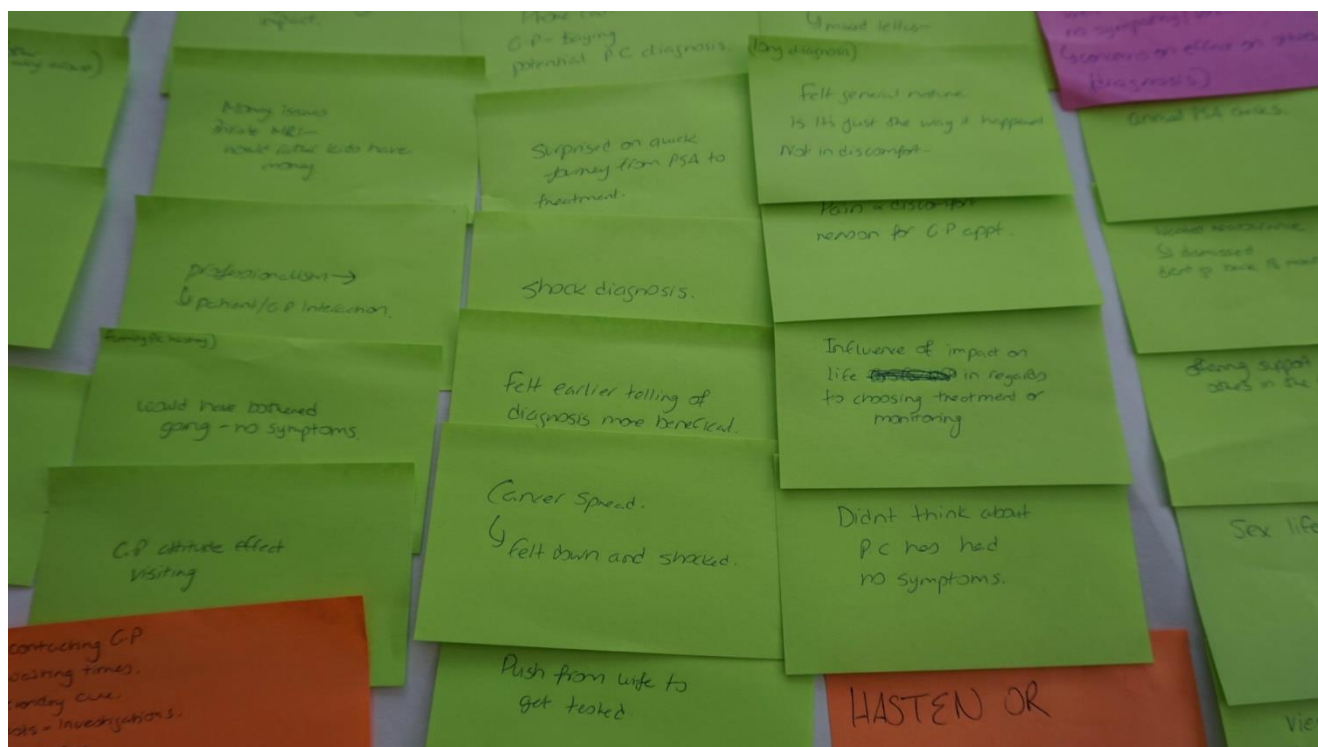 impact.
Money issues
private MRI—
would either kids have
money
professionalism →
↳ patient/GP interaction.
would have bothered
going – no symptoms.
GP attitude effect
visiting
contacting GP
times.
care.
– Investigations.
GP – Saying
potential PC diagnosis.
Surprised on quick
journey from PSA to
treatment.
Shock diagnosis.
Felt earlier telling of
diagnosis more beneficial.
Cancer spread.
↳ felt down and shocked.
Push from wife to
get tested.
diagnosis)
Felt general nature
is it's just the way it happened
Not in discomfort—
Pain & discomfort
reason for GP appt.
Influence of impact on
life in regards
to choosing treatment or
monitoring
Didnt think about
PC has had
no symptoms.
HASTEN OR
effect on
diagnosis)
annual PSA checks.
↳ dismissed
support
others in the
Sex life